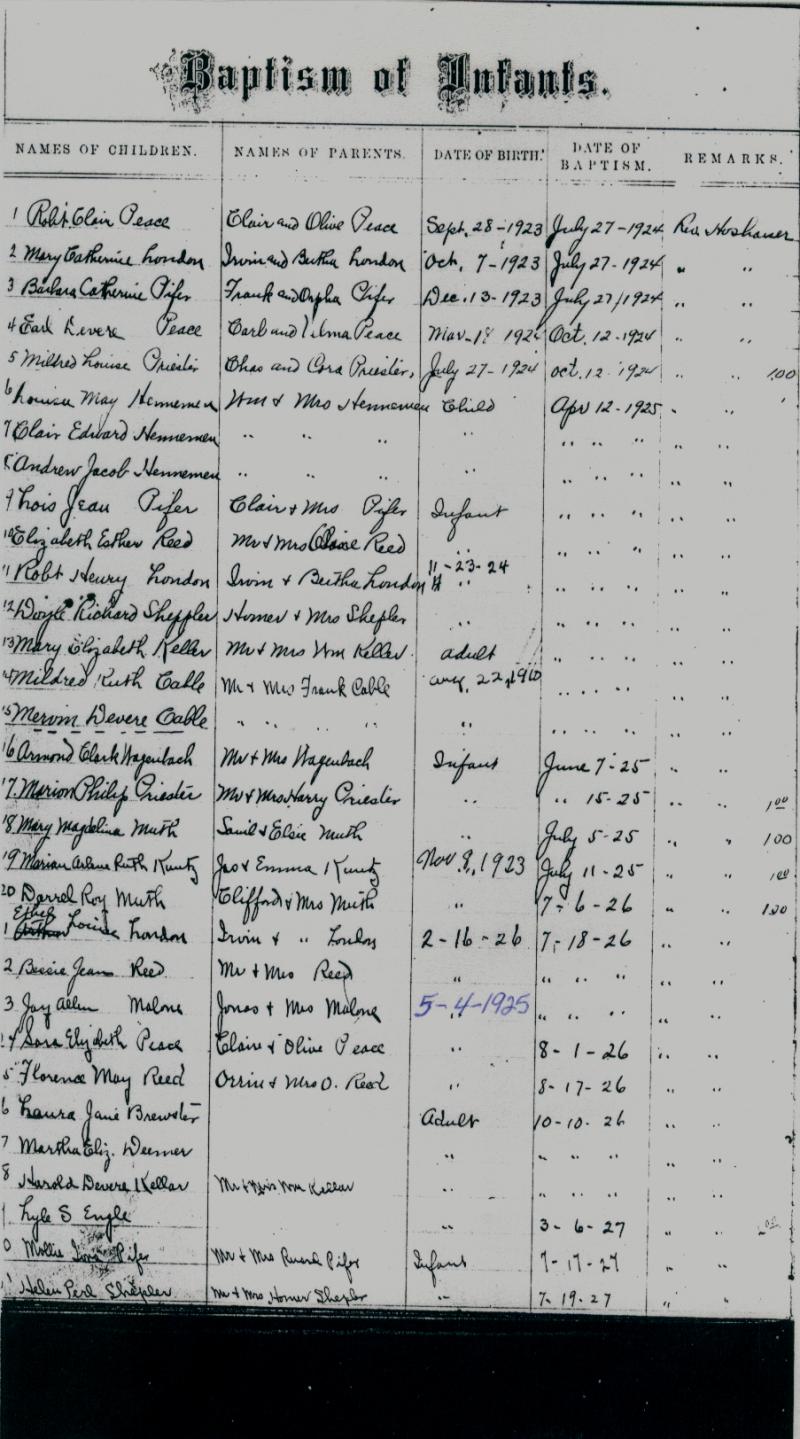 Baptism of Infants.
NAMES OF CHILDREN. NAMES OF PARENTS. DATE OF BIRTH. DATE OF BAPTISM. REMARKS.
1 Robt Clair Peace Clair and Olive Peace Sept. 28-1923 July 27-1924 Rev Hoshauer
2 Mary Catherine London Irvin and Bertha London Oct. 7-1923 July 27-1924 " "
3 Barbara Catherine Pifer Frank and Orpha Pifer Dec. 13-1923 July 27/1924 " "
4 Earl Devere Peace Carl and Velma Peace Mar. 18 1924 Oct. 12-1924 " "
5 Mildred Louise Priester Chas and Cora Priester, July 27-1924 Oct. 12 1924 " " 1.00
6 Louisa May Hennemen Wm & Mrs Hennemen Child Apr 12-1925 " "
7 Clair Edward Hennemen " " " " " " " " "
8 Andrew Jacob Hennemen " " " " " " " " "
9 Lois Jean Pifer Clair & Mrs Pifer Infant " " " " "
10 Elizabeth Esther Reed Mr & Mrs Reed " " " " " "
11 Robt Henry London Irvin & Bertha London 11-23-24 " " " " " "
12 Doyle Richard Sheppler Homer & Mrs Shepler " " " " " "
13 Mary Elizabeth Keller Mr & Mrs Wm Keller. adult " " " " "
14 Mildred Ruth Cable Mr & Mrs Frank Cable Aug. 22, 1910 " " " " "
15 Mervin Devere Cable " " " " " " " " " "
16 Armond Clark Wagenbach Mr & Mrs Wagenbach Infant June 7-25 " "
17. Marion Philip Priester Mr & Mrs Harry Priester " " 15-25 " " 1.00
18 Mary Magdelina Muth Saml & Elsie Muth " July 5-25 " " 1.00
19 Marian Arlene Ruth Kuntz Jas & Emma Kuntz Nov 9, 1923 July 11-25 " " 1.00
20 Darrel Roy Muth Clifford & Mrs Muth " 7-6-26 " " 1.00
1 Ethel Louise London Irvin & " London 2-16-26 7-18-26 " "
2 Bessie Jean Reed Mr & Mrs Reed " " " " " "
3 Jay Allen Malone Jonas & Mrs Malone 5-4-1925 " " " " "
24 Sara Elizabeth Peace Claire & Olive Peace " 8-1-26 " "
5 Florence May Reed Orrin & Mrs O. Reed " 8-17-26 " "
6 Laura Jane Brewster Adult 10-10-26 " "
7 Martha Eliz. Deemer " " " " " "
8 Harold Devere Kellar Mr & Mrs Wm Kellar " " " " " "
9 Lyle S Engle " 3-6-27 " "
0 Mollie Pifer Mr & Mrs Pifer Infant 7-17-27 " "
1 Helen Perl Shepler Mr & Mrs Homer Shepler " 7-19-27 " "